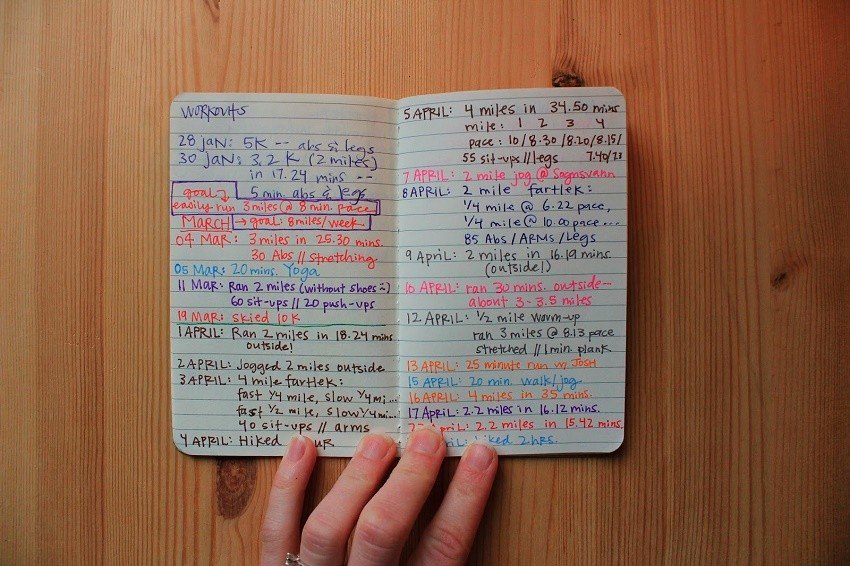 WORKOUTS
28 JAN: 5K -- abs & legs
30 JAN: 3.2 K (2 miles)
in 17.24 mins --
5 min. abs & legs
goal
easily run 3 miles @ 8 min. pace
MARCH → goal: 8 miles/week
04 MAR: 3 miles in 25.30 mins.
30 Abs // stretching
05 MAR: 20 mins. Yoga
11 MAR: Ran 2 miles (without shoes
60 sit-ups // 20 push-ups
19 MAR: skied 10K
1 APRIL: Ran 2 miles in 18.24 mins
outside!
2 APRIL: Jogged 2 miles outside
3 APRIL: 4 mile fartlek:
fast 1/4 mile, slow 1/4 mi...
fast 1/2 mile, slow 1/4 mi...
40 sit-ups // arms
4 APRIL: Hiked
5 APRIL: 4 miles in 34.50 mins
mile: 1 2 3 4
pace: 10/8.30/8.20/8.15/
55 sit-ups // legs 7.40/
7 APRIL: 2 mile jog @ Sognsvann
8 APRIL: 2 mile fartlek:
1/4 mile @ 6.22 pace,
1/4 mile @ 10.00 pace...
85 Abs / ARMS / Legs
9 April: 2 miles in 16.19 mins
(outside!)
10 APRIL: ran 30 mins. outside--
about 3-3.5 miles
12 APRIL: 1/2 mile warm-up
ran 3 miles @ 8.13 pace
stretched // 1 min. plank
13 APRIL: 25 minute run w/ JOSH
15 APRIL: 20 min. walk/jog
16 APRIL: 4 miles in 35 mins.
17 April: 2.2 miles in 16.12 mins.
April: 2.2 miles in 15.42 mins.
hiked 2 hrs.